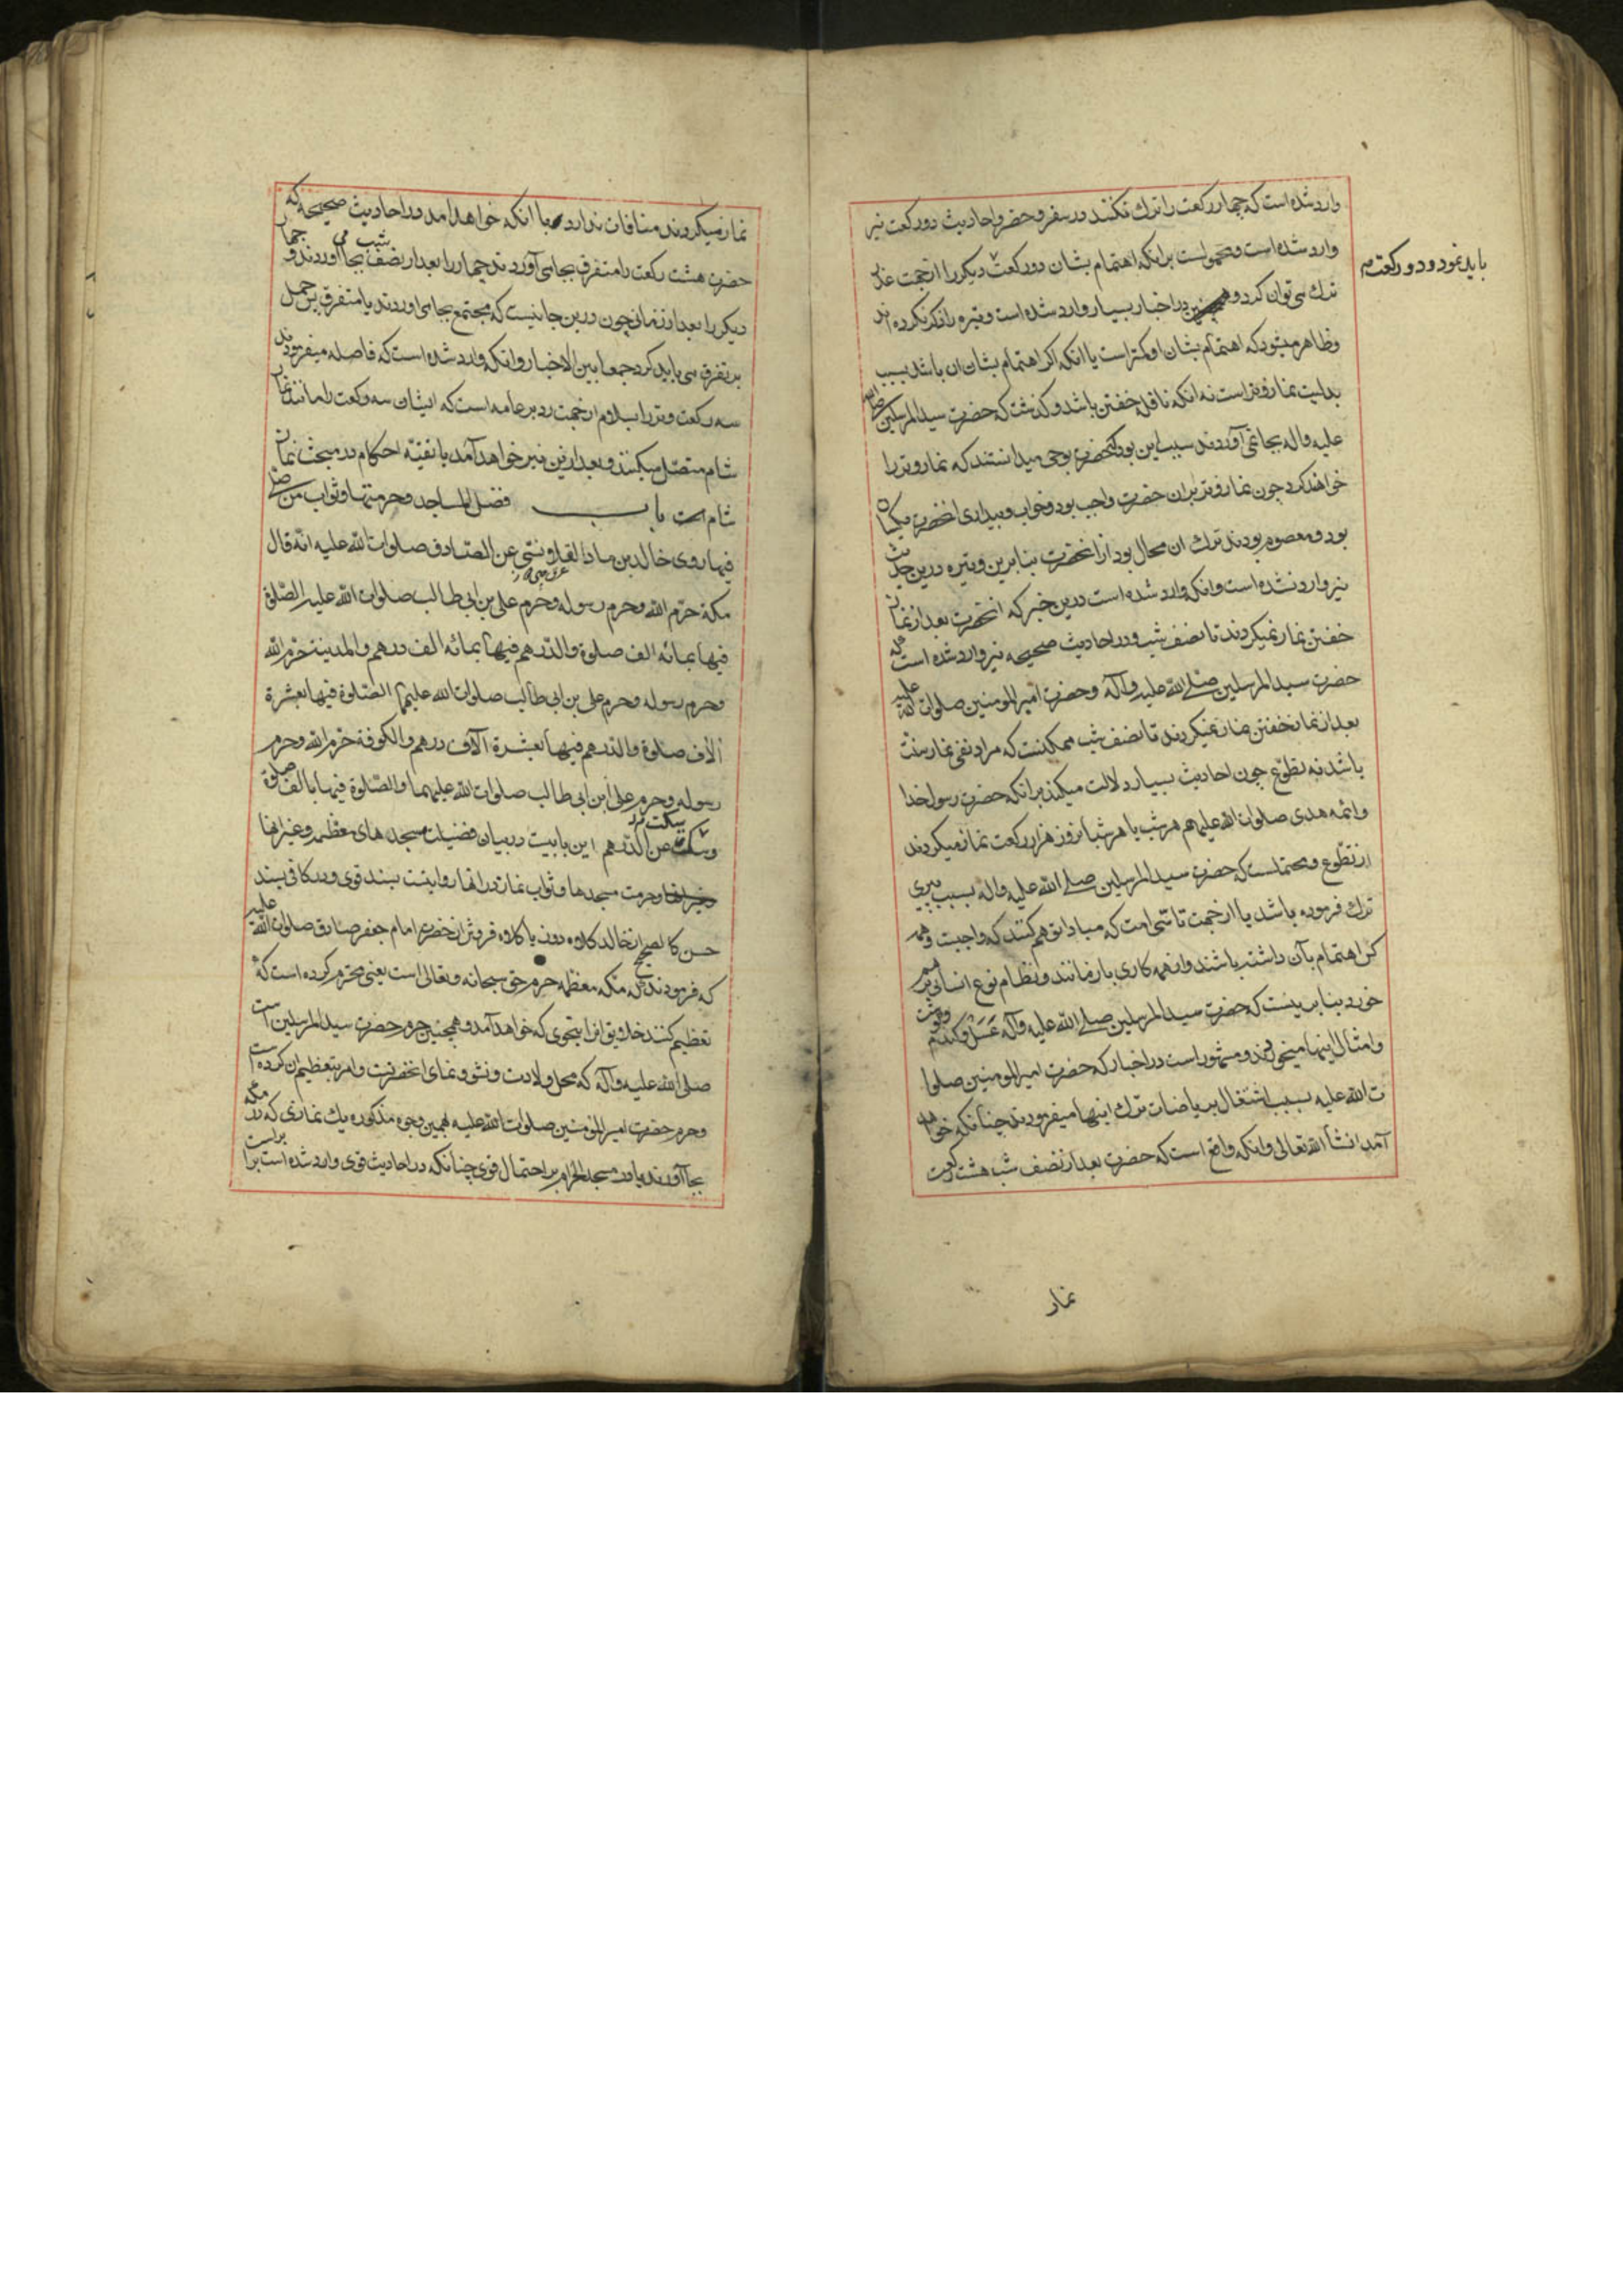 وارد شده است که چهار رکعت را ترک نکنند در سفر و حضر و احادیث دو رکعت نیز
وارد شده است و محمولست برانکه اهتمام بشان دو رکعت دیکر را از جهت عذر
باید نمود و دو رکعت
ترک می توان کرد و در اخبار بسیار وارد شده است و تیره را ذکر نکرده اند
و ظاهر میشود که اهتمام بشان او کمتر است یا انکه اکر اهتمام بشان ان باشد بسبب
بدلیت نماز وتر است نه انکه نافله خفتن باشد و کذشت که حضرت سید المرسلین صلی الله
علیه و اله بجا نمی آوردند سبب این بود که انحضرت بوحی میدانستند که نماز وتر را
خواهند کرد چون نماز وتر بران حضرت واجب بود و خواب و بیداری انحضرت یکسان
بود و معصوم بودند ترک ان محال بود از انحضرت بنابرین وتیره درین حدیث
نیز وارد نشده است و انکه وارد شده است درین خبر که انحضرت بعد از نماز
خفتن نماز نمیکردند تا نصف شب و در احادیث صحیحه نیز وارد شده است که
حضرت سید المرسلین صلی الله علیه و آله و حضرت امیر المومنین صلوات الله علیه
بعد از نماز خفتن نماز نمیکردند تا نصف شب ممکنست که مراد نفی نماز سنت
باشد نه تطوع چون احادیث بسیار دلالت میکند برانکه حضرت رسول خدا
و ائمه هدی صلوات الله علیهم هر شب یا هر شبانروز هزار رکعت نماز میکردند
از تطوع و محتملست که حضرت سید المرسلین صلی الله علیه و اله بسبب پیری
ترک فرموده باشد یا از جهت تاسی امت که مبادا توهم کنند که واجبست و همه
کس اهتمام بآن داشته باشند و از همه کاری باز مانند و نظام نوع انسانی بر هم
خورد بنابرینست که حضرت سید المرسلین صلی الله علیه و آله عسل و کندم و کوشت
و امثال اینها میخوردند و مشهور است در اخبار که حضرت امیر المومنین صلوا
ت الله علیه بسبب اشتغال بریاضات ترک اینها میفرمودند چنانکه خواهد
آمد انشا الله تعالی و انکه واقع است که حضرت بعد از نصف شب هشت رکعت
نماز
نماز میکردند منافات ندارد با انکه خواهد امد در احادیث صحیحه که
حضرت هشت رکعت را متفرق بجا می آوردند چهار را بعد از نصف شب بجا می اوردند و چهار
دیکر را بعد از زمانی چون درین جا نیست که مجتمع بجا می اوردند یا متفرق پس حمل
بر تفرق می باید کرد جمعا بین الاخبار و انکه وارد شده است که فاصله میفرمودند
سه رکعت وتر را بسلام از جهت رد بر عامه است که ایشان سه رکعت را مانند نماز
شام متصل میکنند و بعد ازین نیز خواهد آمد با تقیه احکام در مبحث نماز
شام است باب فضل المساجد و حرمتها و ثواب من صلی
فیها روی خالد بن ماد القلانسی عن الصادق صلوات الله علیه انه قال
مکة حرم الله و حرم رسوله و حرم علی بن ابی طالب صلوات الله علیه الصلوة
فیها بمائه الف صلوة والدرهم فیها بمائه الف درهم والمدینة حرم الله
و حرم رسوله و حرم علی بن ابی طالب صلوات الله علیهما الصلوة فیها بعشرة
آلاف صلوة والدرهم فیها بعشرة آلاف درهم والکوفة حرم الله و حرم
رسوله و حرم علی ابن ابی طالب صلوات الله علیهما والصلوة فیها بالف صلوة
و سکت عن الدرهم این بابیست در بیان فضیلت مسجد های معظمه و غیر انها
و حرمت مسجدها و ثواب نماز در انها روایتست بسند قوی و در کافی بسند
حسن کالصحیح از خالد کلاوه دوز یا کلاوه فروش از حضرت امام جعفر صادق صلوات الله علیه
که فرمودند که مکه معظمه حرم حق سبحانه و تعالی است یعنی محترم کرده است که
تعظیم کنند خلایق انرا بنحوی که خواهد آمد و همچنین حرم حضرت سید المرسلین است
صلی الله علیه و آله که محل ولادت و نشو و نمای انحضرتست و امر بتعظیم ان کرده است
و حرم حضرت امیر المؤمنین صلوات الله علیه بهمین وجوه مذکوره یک نمازی که در مکه
بجا آورند یا در مسجد الحرام بر احتمال قوی چنانکه در احادیث قوی وارد شده است برابر است